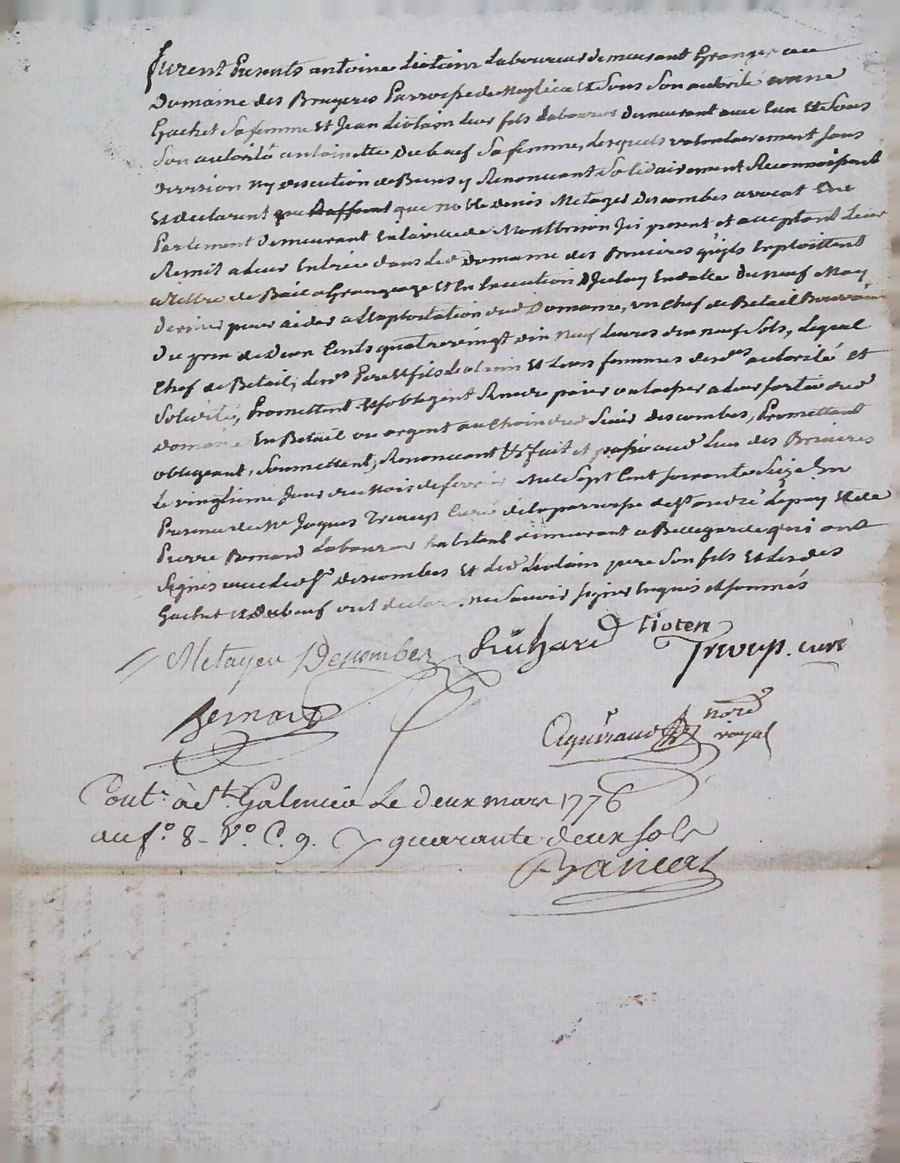 furent Presents antoine Liotain Laboureur demeurant Granger au
Domaine des Bruyeres Parroisse de et sous son autorité
Gachet sa femme et Jean Liotain leur fils Laboureur demeurant avec eux et sous
son autorité antoinette Duboeuf sa femme, lesquels volontairement sans
division ny discution de Biens y Renonceant solidairement Reconnoissent
et declarent que que noble denis Metayer Descombes avocat en
Parlement demeurant en la ville de Montbrison Icy present et acceptant Leur
Remit a leur Entrée dans led Domaine des Bruieres qu'ils Exploittent
a tittre de Bail a Grangeage et en Execution d'Iceluy en datte du neuf May
dernier pour aider a L'explostation dud Domaine, un chef de Betail
du prix de deux Cents quatre vingt dix neuf Livres dix neuf sols, lequel
chef de Betail, lesd Pere et fils Liotain et leurs femmes desd autorité et
solidité, Promettent et s'obligent Rendre a leur sortie dud
domaine En Betail ou argent au Choix dud Sieur descombes, Promettant
obligeant, soumettant, Renonceant &c fait et passé aud Lieu des Bruieres
Le vingtieme Jour du Mois de fevrier Mil Sept Cent soixante Seize En
Presence de Mre Jaques Curé de la parroisse de St andré Lepuy et de
Pierre Bernard Laboureur habitant demeurant a Bellegarde qui ont
signés avec led Sr descombes et led Liotain pere son fils et lesdes
Gachet et Duboeuf ont declaré ne savoir signer Enquis et sommés
Metayer Descombes Richard Lioten
curé
Bernard
Aguiraud nore
royal
Contlé à St. Galmier Le deux mars 1776
au fo. 8 - Vo. C. 9. quarante deux sols